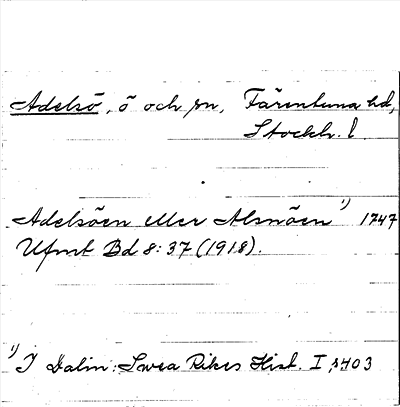 Adelsö, ö och sn, Färentuna hd,
Stockh. l.
Adelsöen eller Alsnöen 1) 1747
Ufmt Bd 8:37 (1918).
1) I Dalin: Svea Rikes Hist. I, s 403